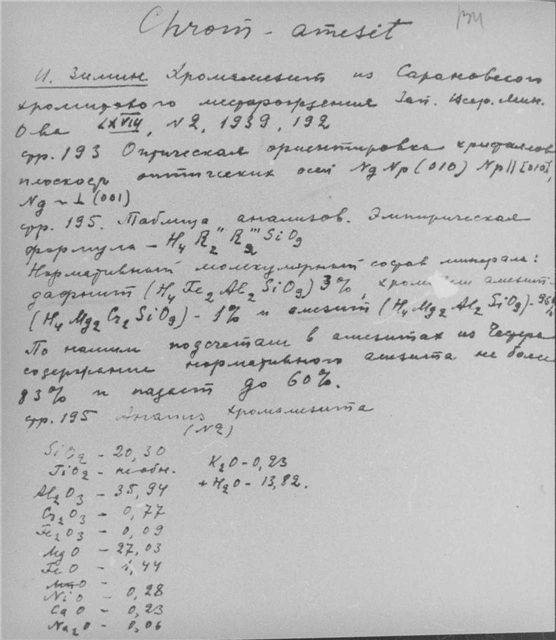 Chrom - amesit
И. Зимин Хромамезит из Сарановского
хромитового месторождения Зап. Всер. Мин.
О-ва LXVIII, N2, 1939, 192
стр. 193 Оптическая ориентировка кристаллов
плоскость оптических осей NgNp (010) Np || [010],
Ng ~ ⊥ (001)
стр. 195. Таблица анализов. Эмпирическая
формула - H4 R2'' R2''' SiO9
Нормативный молекулярный состав минерала:
дафнит (H4 Fe2 Al2 SiO9) 3%, хром амезит
(H4 Mg2 Cr2 SiO9) - 1% и амезит (H4 Mg2 Al2 SiO9) - 96%
По нашим подсчетам в амезитах из Честера
содержание нормативного амезита не более
83% и падает до 60%.
стр. 195 Анализ хромамезита
(N2)
SiO2 - 20,30
TiO2 - не обн.
Al2O3 - 35,94
Cr2O3 - 0,77
Fe2O3 - 0,09
MgO - 27,03
FeO - 1,44
MnO -
NiO - 0,28
CaO - 0,23
Na2O - 0,06
K2O - 0,23
+H2O - 13,82.